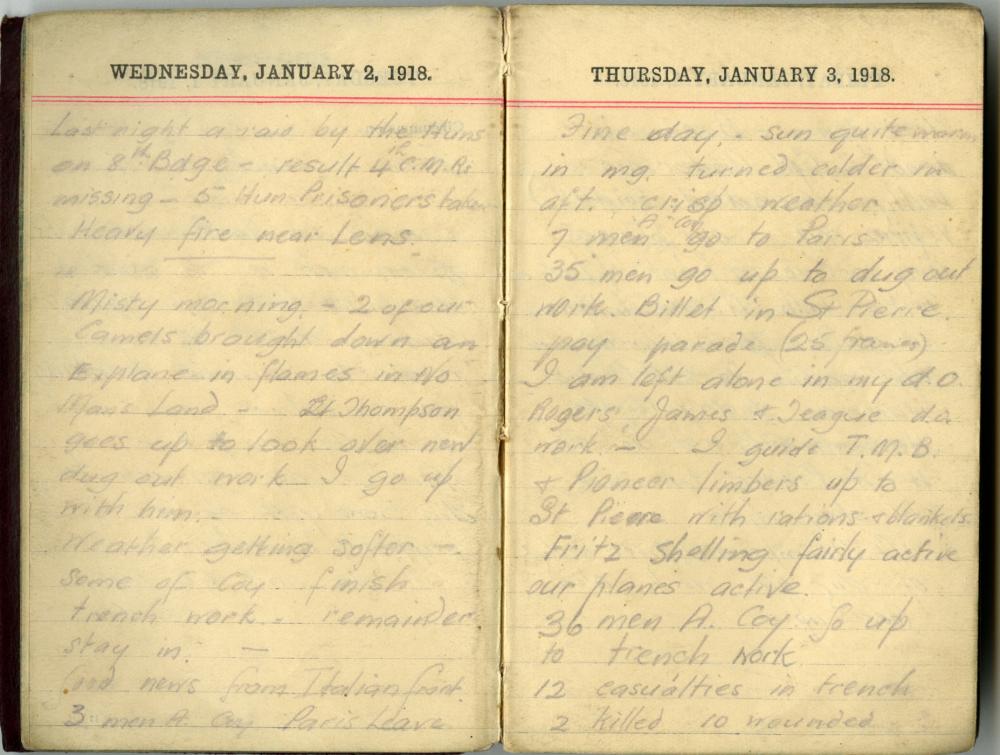 WEDNESDAY, JANUARY 2, 1918.
Last night a raid by the Huns
on 8th Bdge - result 4 C.M.Rs
missing - 5 Hun Prisoners taken
Heavy fire near Lens.
Misty morning. - 2 of our
Camels brought down an
E. plane in flames in No
Mans Land - Lt Thompson
goes up to look over new
dug out work I go up
with him. -
Weather getting softer -
Some of Coy finish
trench work - remainder
stay in. -
Good news from Italian front.
3 men A. Coy Paris Leave
THURSDAY, JANUARY 3, 1918.
Fine day, - sun quite warm
in mg. turned colder in
aft. crisp weather
7 men A Coy go to Paris
35 men go up to dug out
work. Billet in St Pierre.
pay parade (25 francs)
I am left alone in my d.o.
Rogers James & Teague d.o.
work - I guide T.M.B.
& Pioneer limbers up to
St Pierre with rations & blankets.
Fritz shelling fairly active
our planes active.
36 men A. Coy go up
to trench work
12 casualties in trench
2 killed 10 wounded